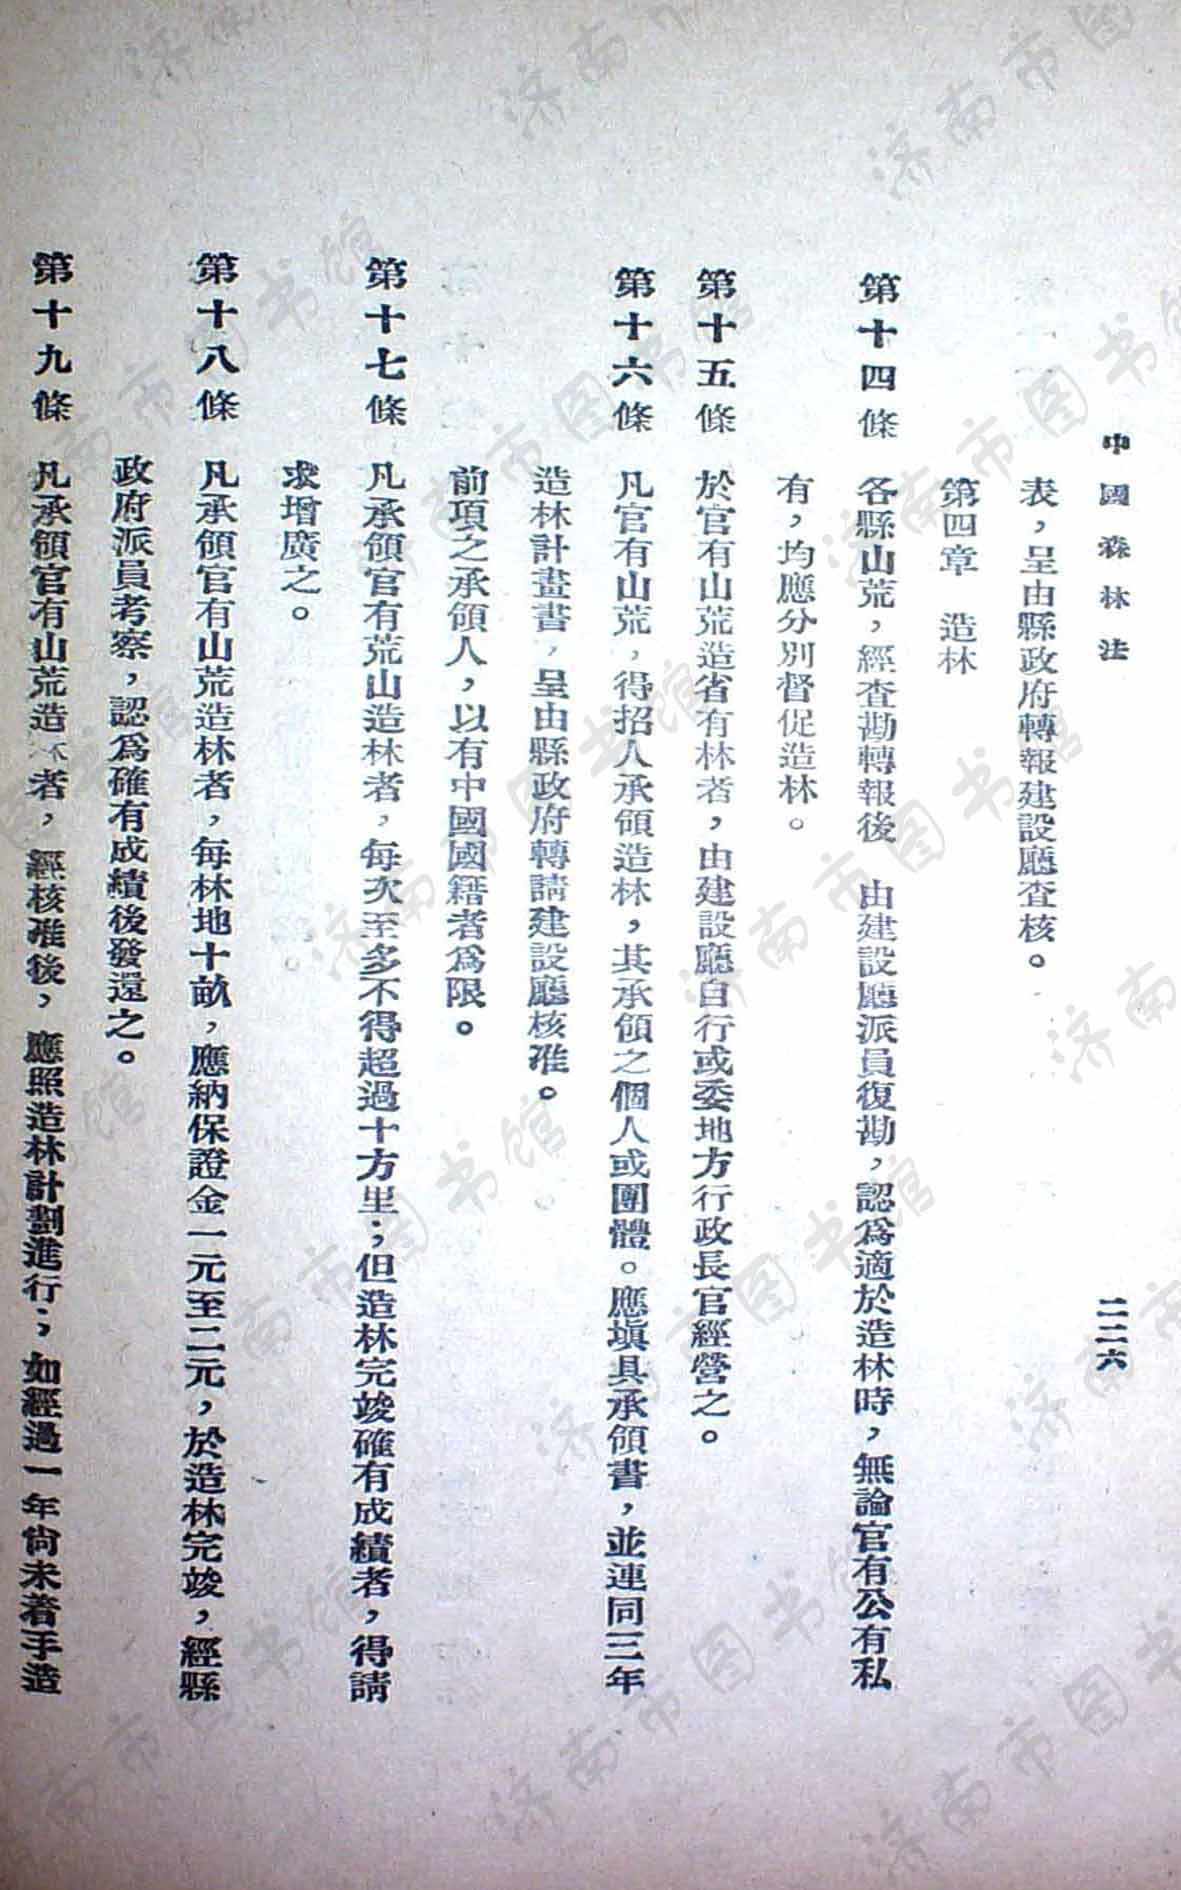 中國森林法
二二六
表，呈由縣政府轉報建設廳查核。
第四章　造林
第十四條　各縣山荒，經查勘轉報後　由建設廳派員復勘，認爲適於造林時，無論官有公有私
有，均應分別督促造林。
第十五條　於官有山荒造省有林者，由建設廳自行或委地方行政長官經營之。
第十六條　凡官有山荒，得招人承領造林，其承領之個人或團體。應塡具承領書，並連同三年
造林計畫書，呈由縣政府轉請建設廳核准。
前項之承領人，以有中國國籍者爲限。
第十七條　凡承領官有荒山造林者，每次至多不得超過十方里；但造林完竣確有成績者，得請
求增廣之。
第十八條　凡承領官有山荒造林者，每林地十畝，應納保證金一元至二元，於造林完竣，經縣
政府派員考察，認爲確有成績後發還之。
第十九條　凡承領官有山荒造林者，經核准後，應照造林計劃進行；如經過一年尙未着手造
济南市图书馆